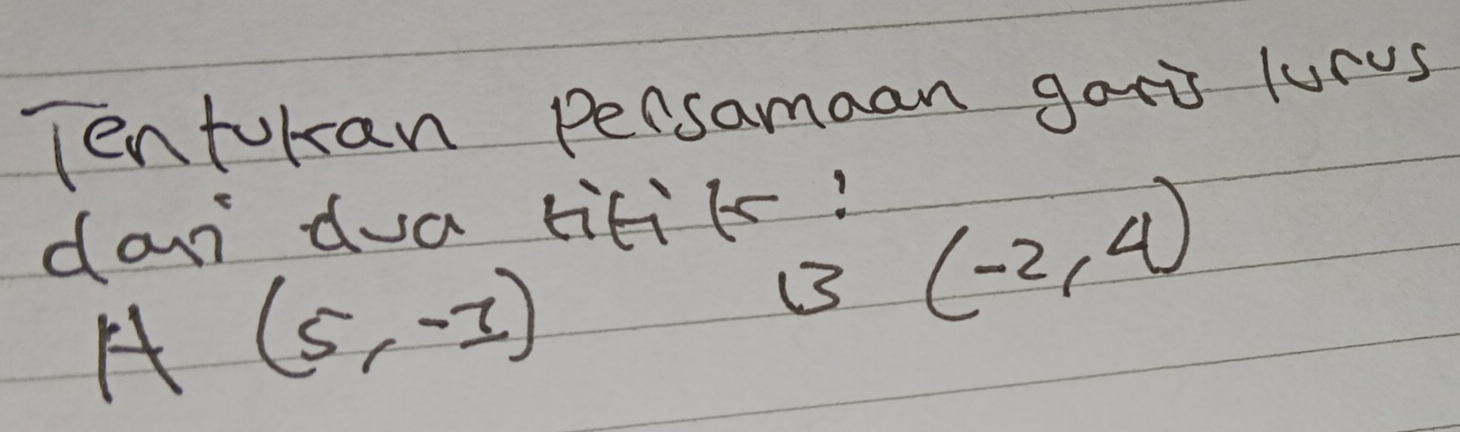 Tentukan persamaan garis lurus
dari dua titik :
A (5, -1) B (-2, 4)